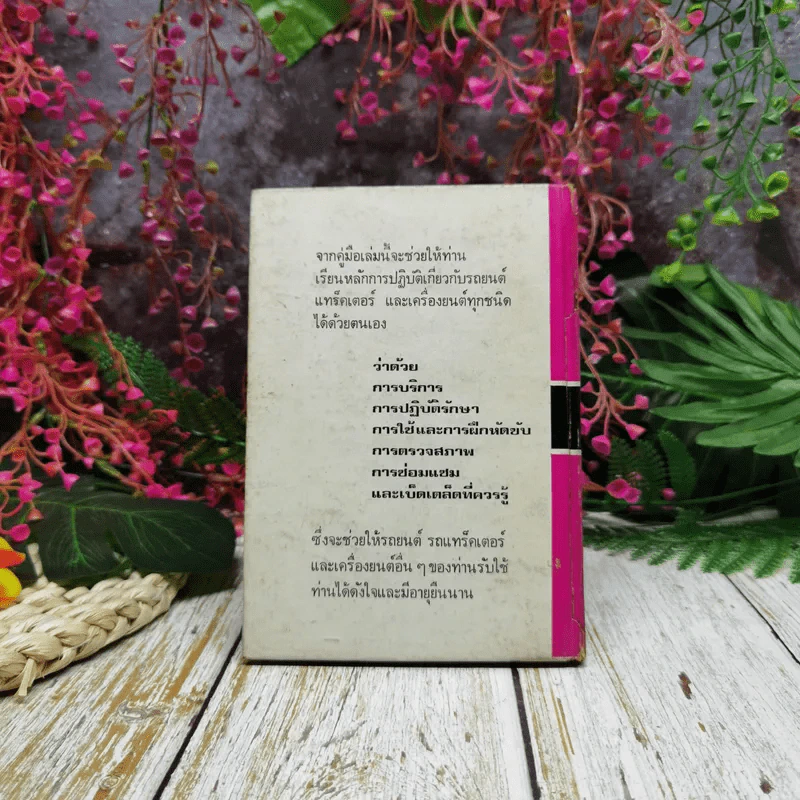 จากคู่มือเล่มนี้จะช่วยให้ท่าน
เรียนหลักการปฏิบัติเกี่ยวกับรถยนต์
แทร็คเตอร์ และเครื่องยนต์ทุกชนิด
ได้ด้วยตนเอง
ว่าด้วย
การบริการ
การปฏิบัติรักษา
การใช้และการฝึกหัดขับ
การตรวจสภาพ
การซ่อมแซม
และเบ็ดเตล็ดที่ควรรู้
ซึ่งจะช่วยให้รถยนต์ รถแทร็คเตอร์
และเครื่องยนต์อื่น ๆ ของท่านรับใช้
ท่านได้ดังใจและมีอายุยืนนาน